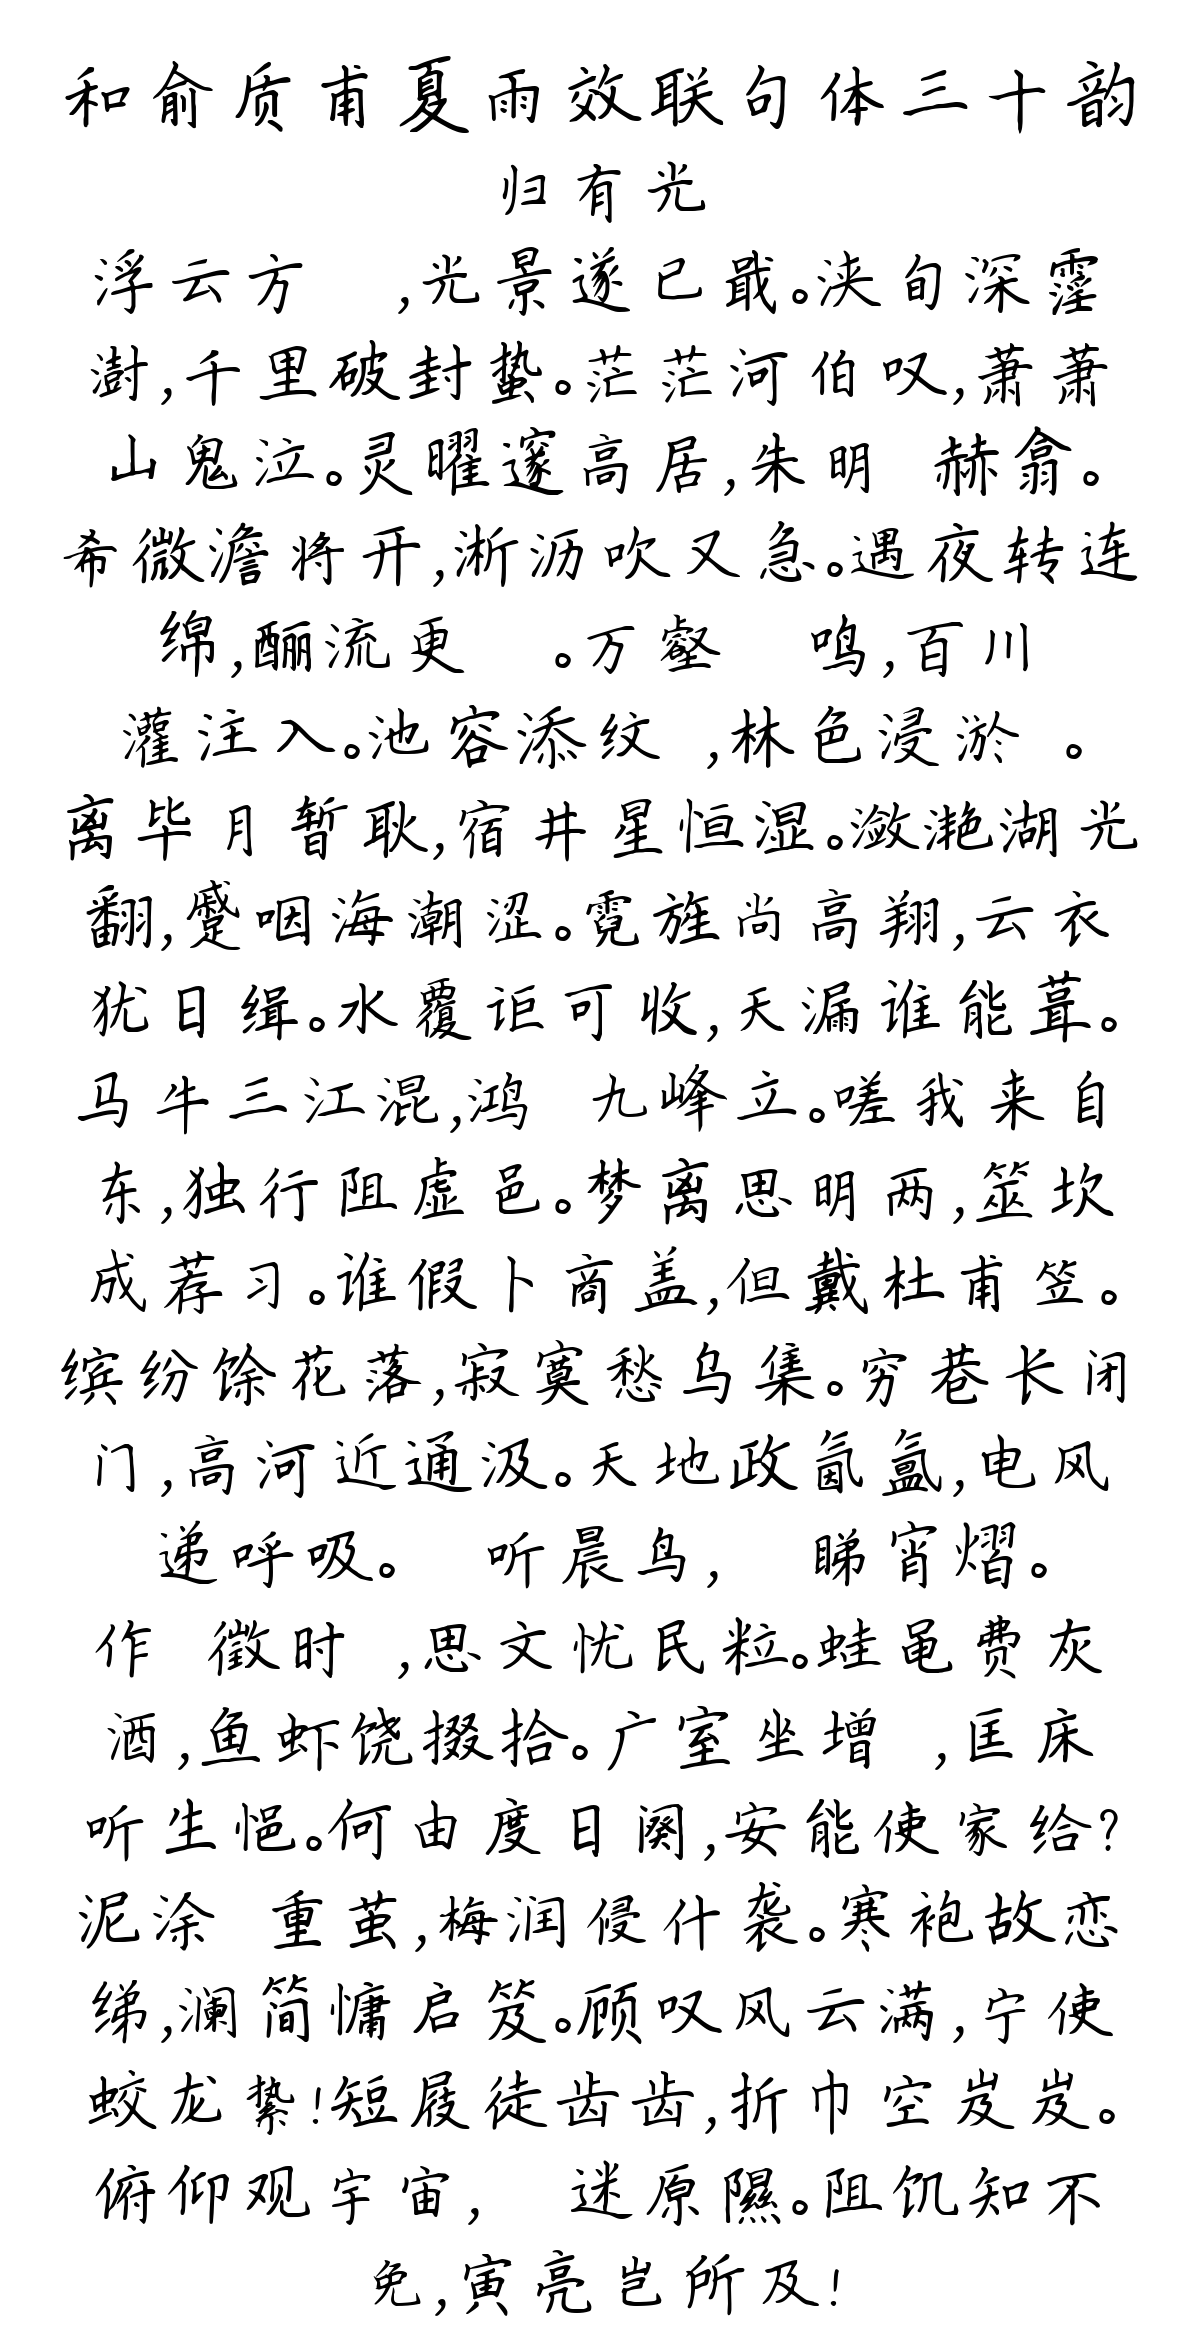 和俞质甫夏雨效联句体三十韵
归有光
浮云方 ,光景遂已戢。浃旬深霪
澍,千里破封蛰。茫茫河伯叹,萧萧
山鬼泣。灵曜邃高居,朱明 赫翕。
希微澹将开,淅沥吹又急。遇夜转连
绵,酾流更 。万壑 鸣,百川
灌注入。池容添纹 ,林色浸淤 。
离毕月暂耿,宿井星恒湿。潋滟湖光
翻,蹙咽海潮涩。霓旌尚高翔,云衣
犹日缉。水覆讵可收,天漏谁能葺。
马牛三江混,鸿 九峰立。嗟我来自
东,独行阻虚邑。梦离思明两,筮坎
成荐习。谁假卜商盖,但戴杜甫笠。
缤纷馀花落,寂寞愁乌集。穷巷长闭
门,高河近通汲。天地政氤氲,电风
递呼吸。 听晨鸟, 睇宵熠。
作 徵时 ,思文忧民粒。蛙黾费灰
酒,鱼虾饶掇拾。广室坐增 ,匡床
听生悒。何由度日阕,安能使家给?
泥涂 重茧,梅润侵什袭。寒袍故恋
绨,澜简慵启笈。顾叹风云满,宁使
蛟龙絷!短屐徒齿齿,折巾空岌岌。
俯仰观宇宙, 迷原隰。阻饥知不
免,寅亮岂所及!